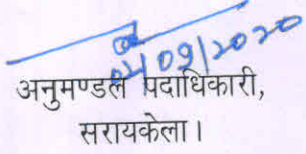 02/09/2020
अनुमण्डल पदाधिकारी,
सरायकेला।